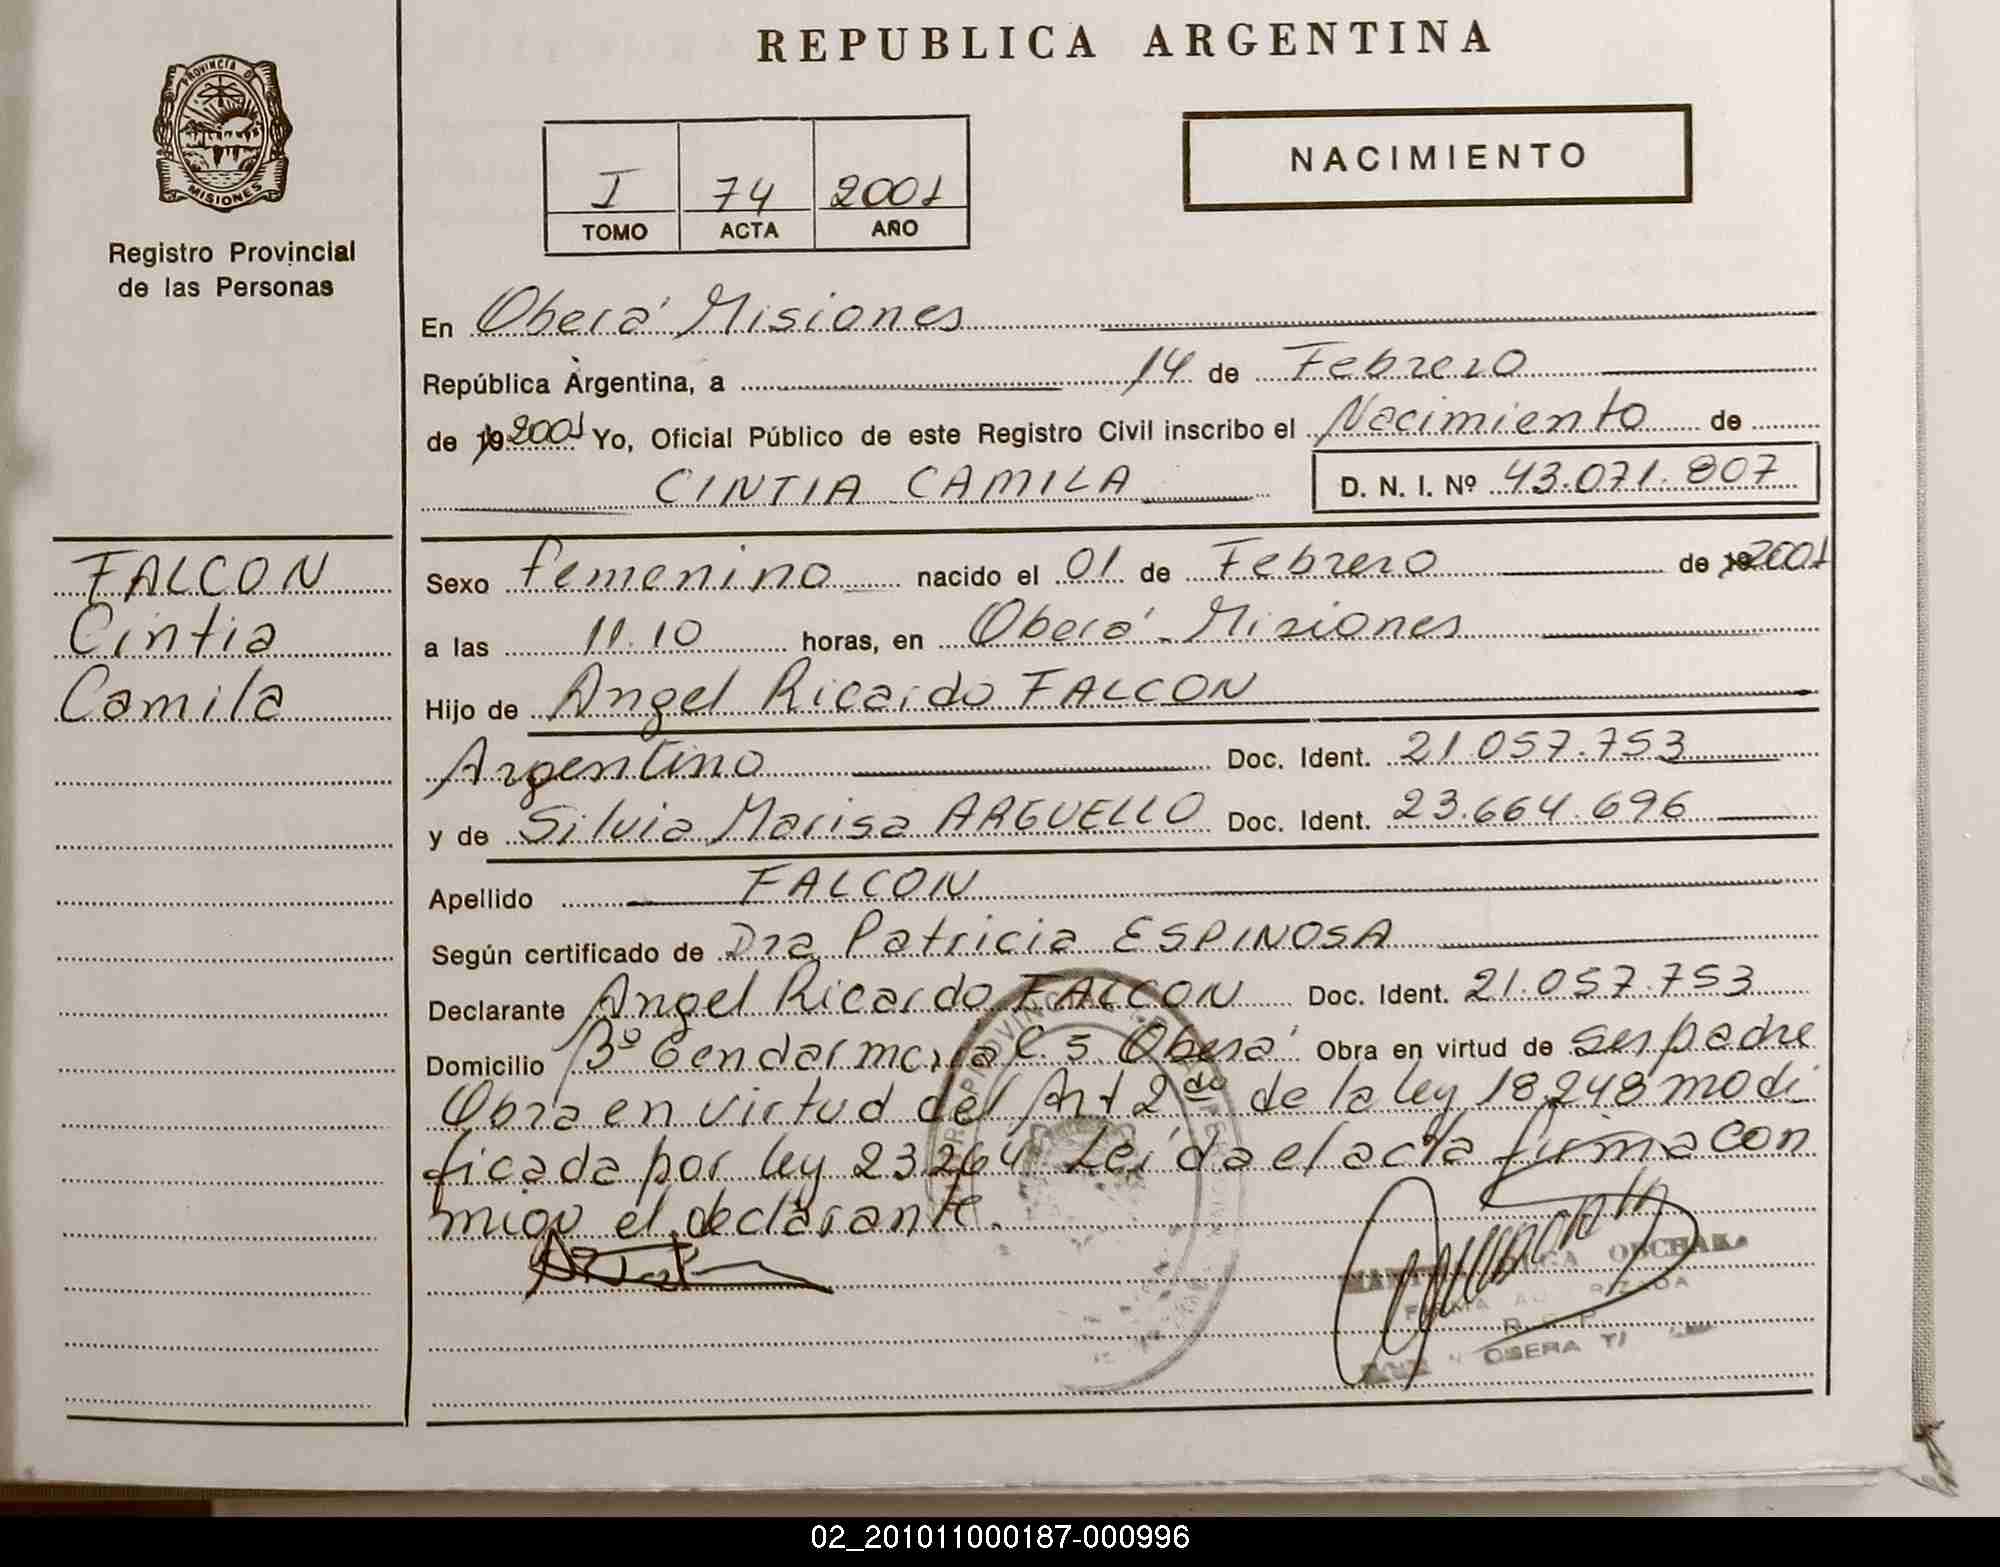 REPUBLICA ARGENTINA
PROVINCIA DE
MISIONES
Registro Provincial
de las Personas
I 74 2001
TOMO ACTA AÑO
NACIMIENTO
En Oberá Misiones
República Argentina, a 14 de Febrero
de 19 2001 Yo, Oficial Público de este Registro Civil inscribo el Nacimiento de
CINTIA CAMILA D. N. I. Nº 43.071.807
FALCON
Cintia
Camila
Sexo femenino nacido el 01 de Febrero de 19 2001
a las 11.10 horas, en Oberá - Misiones
Hijo de Angel Ricardo FALCON
Argentino Doc. Ident. 21.057.753
y de Silvia Marisa ARGUELLO Doc. Ident. 23.664.696
Apellido FALCON
Según certificado de Dra Patricia ESPINOSA
Declarante Angel Ricardo FALCON Doc. Ident. 21.057.753
Domicilio Bº Gendarmería C. 5. Oberá Obra en virtud de ser padre
Obra en virtud del Art 2do de la ley 18.248 modi
ficada por ley 23.264 Leída el acta firma con
migo el declarante.
OBERA
02_201011000187-000996